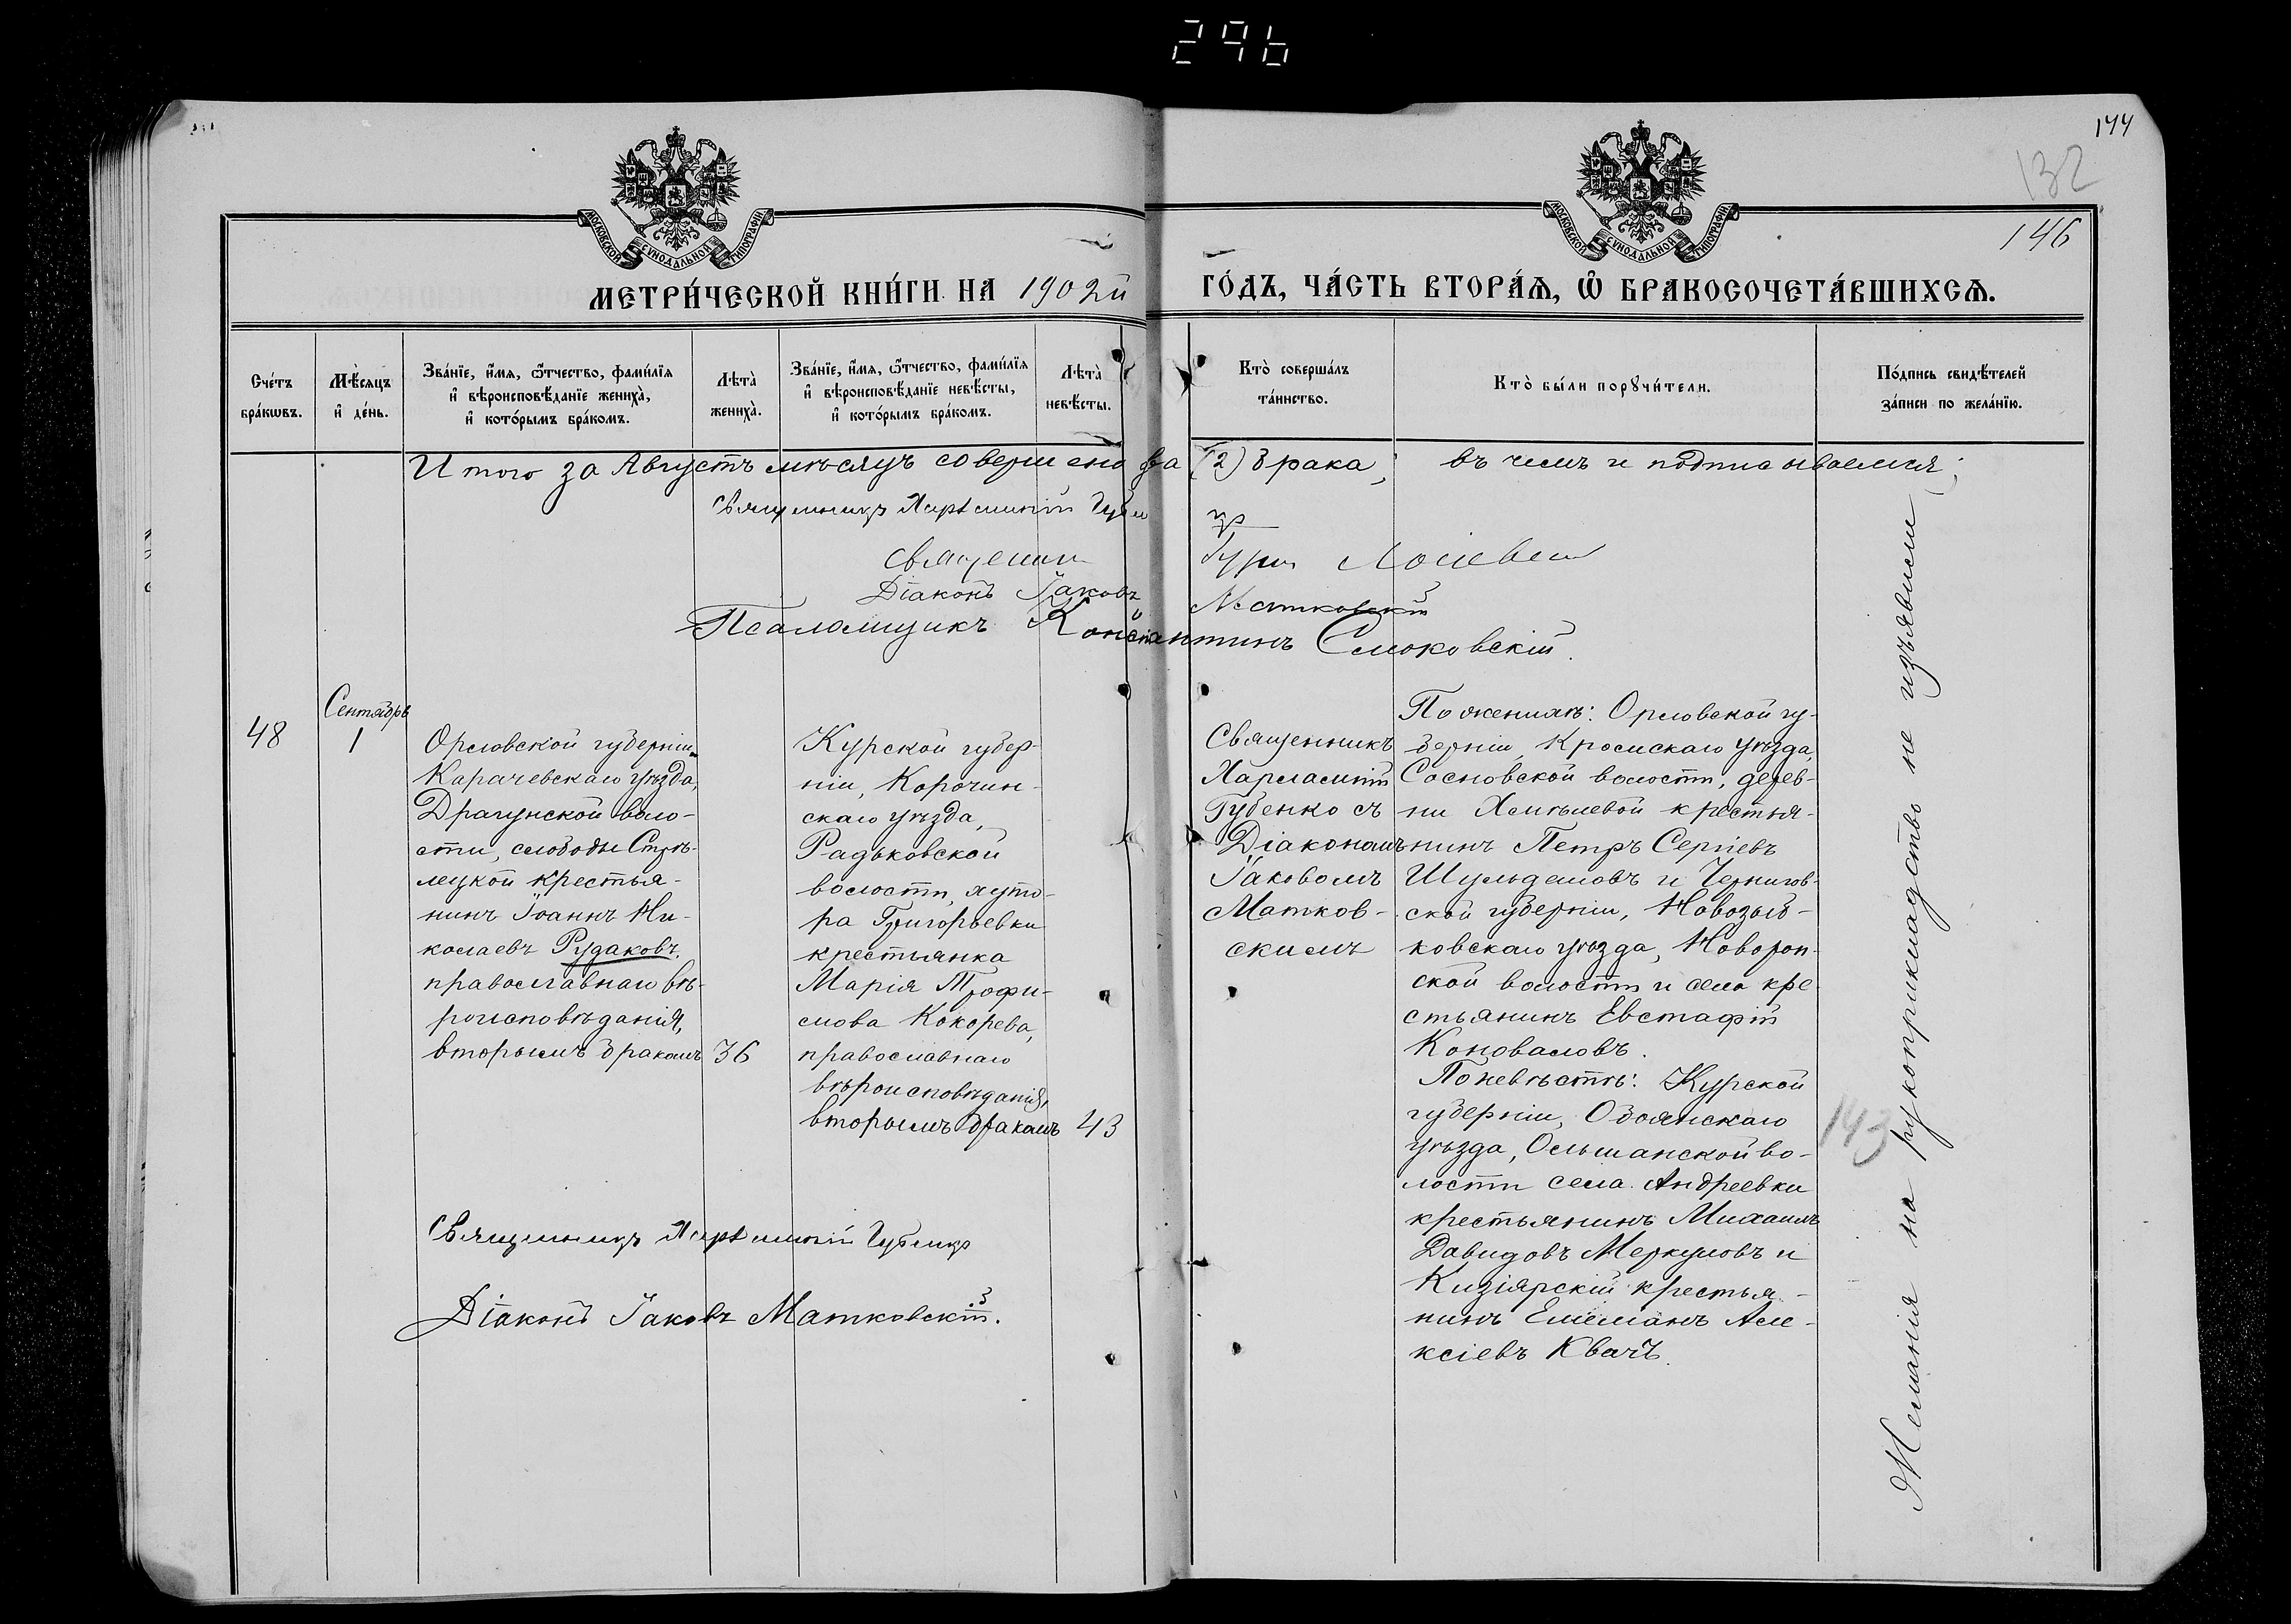 296
144
132
146
МОСКОВСКОЙ СУНОДАЛЬНОЙ ТИПОГРАФІИ
МОСКОВСКОЙ СУНОДАЛЬНОЙ ТИПОГРАФІИ
МЕТРИ́ЧЕСКОЙ КНИ́ГИ НА 1902й ГО́ДЪ, ЧА́СТЬ ВТОРА́Ѧ, Ѡ҆ БРАКОСОЧЕТА́ВШИХСѦ.
Сче́тъ бра́кѡвъ.
Мѣ́сяцъ и҆ де́нь.
Зва́нїе, и҆́мя, ѻ҆́тчество, фами́лїя и҆ вѣроисповѣ́данїе жениха̀, и҆ кото́рымъ бра́комъ.
Лѣта̀ жениха̀.
Зва́нїе, и҆́мя, ѻ҆́тчество, фами́лїя и҆ вѣроисповѣ́данїе невѣ́сты, и҆ кото́рымъ бра́комъ.
Лѣта̀ невѣ́сты.
Кто̀ соверша́лъ та́инство.
Кто̀ бы́ли порꙋчи́тели.
По́дпись свидѣ́телей за́писи по жела́нїю.
Итого за Августъ мѣсяцъ совершено два (2) брака, въ чемъ и подписываемся:
Священникъ Харлампій
Діаконъ Іаковъ Матковскій
Псаломщикъ Константинъ
48
Сентябрь
1
Орловской губерніи,
Карачевскаго уѣзда,
Драгунской воло-
сти, слободы Стрѣ-
лецкой крестья-
нинъ Іоаннъ Ни-
колаевъ Рудаковъ,
православнаго вѣ-
роисповѣданія,
вторымъ бракомъ
36
Курской губер-
ніи, Корочин-
скаго уѣзда,
Радьковской
волости, хуто-
ра Григорьевки
крестьянка
Марія Трофи-
мова Кокорева,
православнаго
вѣроисповѣданія,
вторымъ бракомъ
43
Священникъ
Харлампій
Губенко съ
Діакономъ
Іаковомъ
Матков-
скимъ
По женихѣ: Орловской гу-
берніи, Кромскаго уѣзда,
Сосновской волости, дерев-
ни Хмѣлевой крестья-
нинъ Петръ Сергіевъ
Шульдешовъ и Чернигов-
ской губерніи, Новозыб-
ковскаго уѣзда, Новороп-
ской волости и села кре-
стьянинъ Евстафій
Коноваловъ.
По невѣстѣ: Курской
губерніи, Обоянскаго
уѣзда, Ольшанской во-
лости села Андреевки
крестьянинъ Михаилъ
Давидовъ Меркуловъ и
Кизіярскій крестья-
нинъ Емеліанъ Але-
ксіевъ Квачъ.
143
Желанія на рукоприкладство не изъявили
Священникъ Харлампій Губенко
Діаконъ Іаковъ Матковскій.